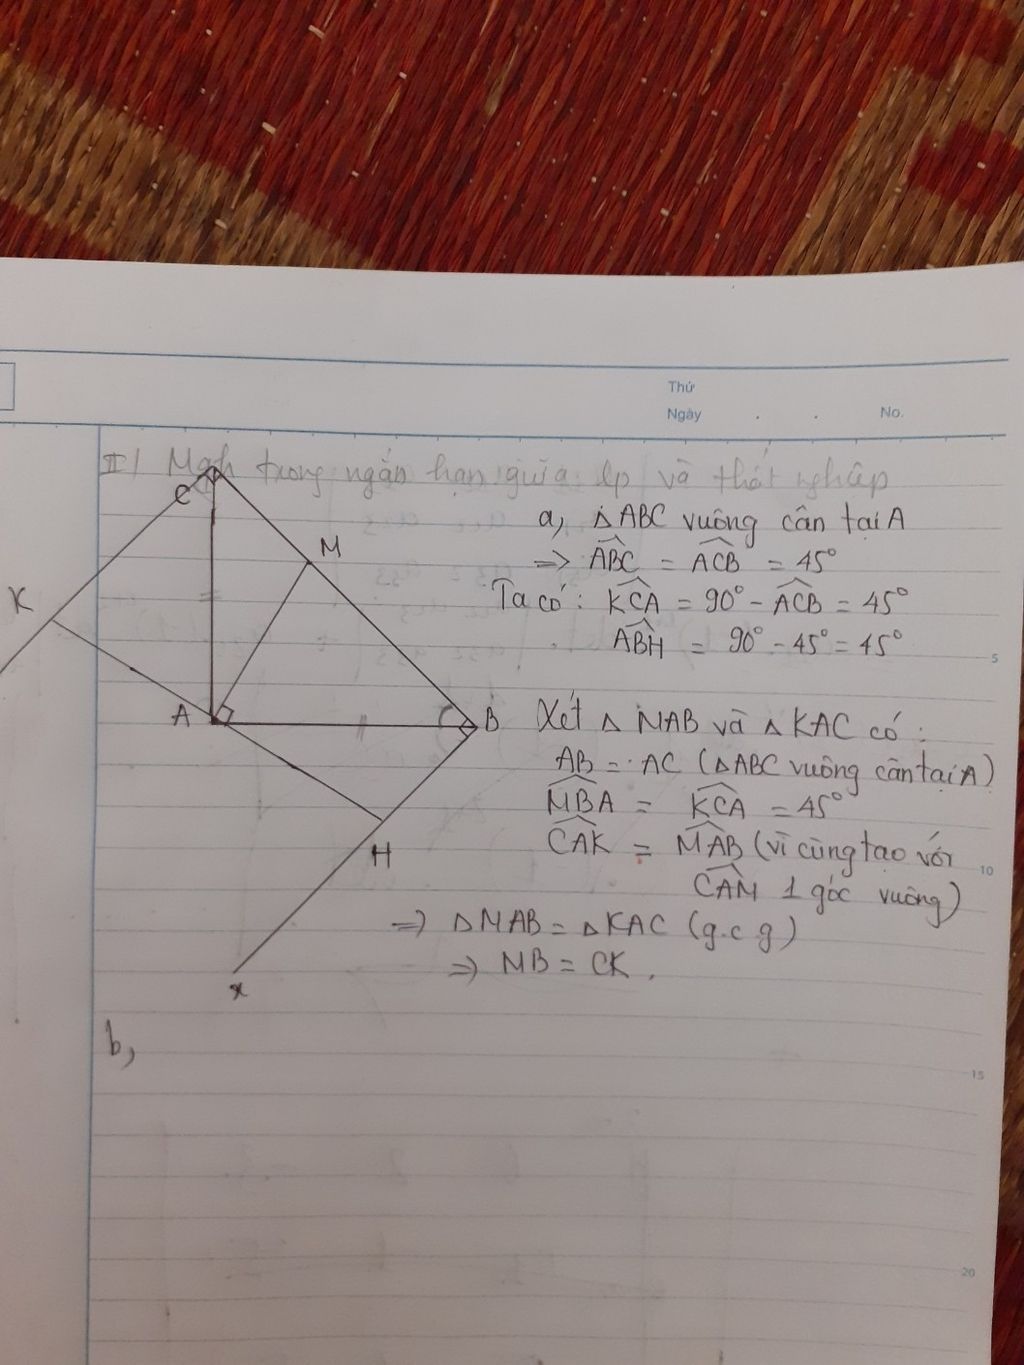 Thứ
Ngày . . No.
II/ Mqh trong ngắn hạn giữa lp và thất nghiệp
C
a, △ABC vuông cân tại A
M
=> \widehat{ABC} = \widehat{ACB} = 45°
K
Ta có: \widehat{KCA} = 90° - \widehat{ACB} = 45°
\widehat{ABH} = 90° - 45° = 45°
5
A
B
Xét △ MAB và △ KAC có:
AB = AC (△ABC vuông cân tại A)
\widehat{MBA} = \widehat{KCA} = 45°
H
\widehat{CAK} = \widehat{MAB} (vì cùng tạo với
10
\widehat{CAM} 1 góc vuông)
=> △MAB = △KAC (g.c g)
=> MB = CK.
x
b,
15
20